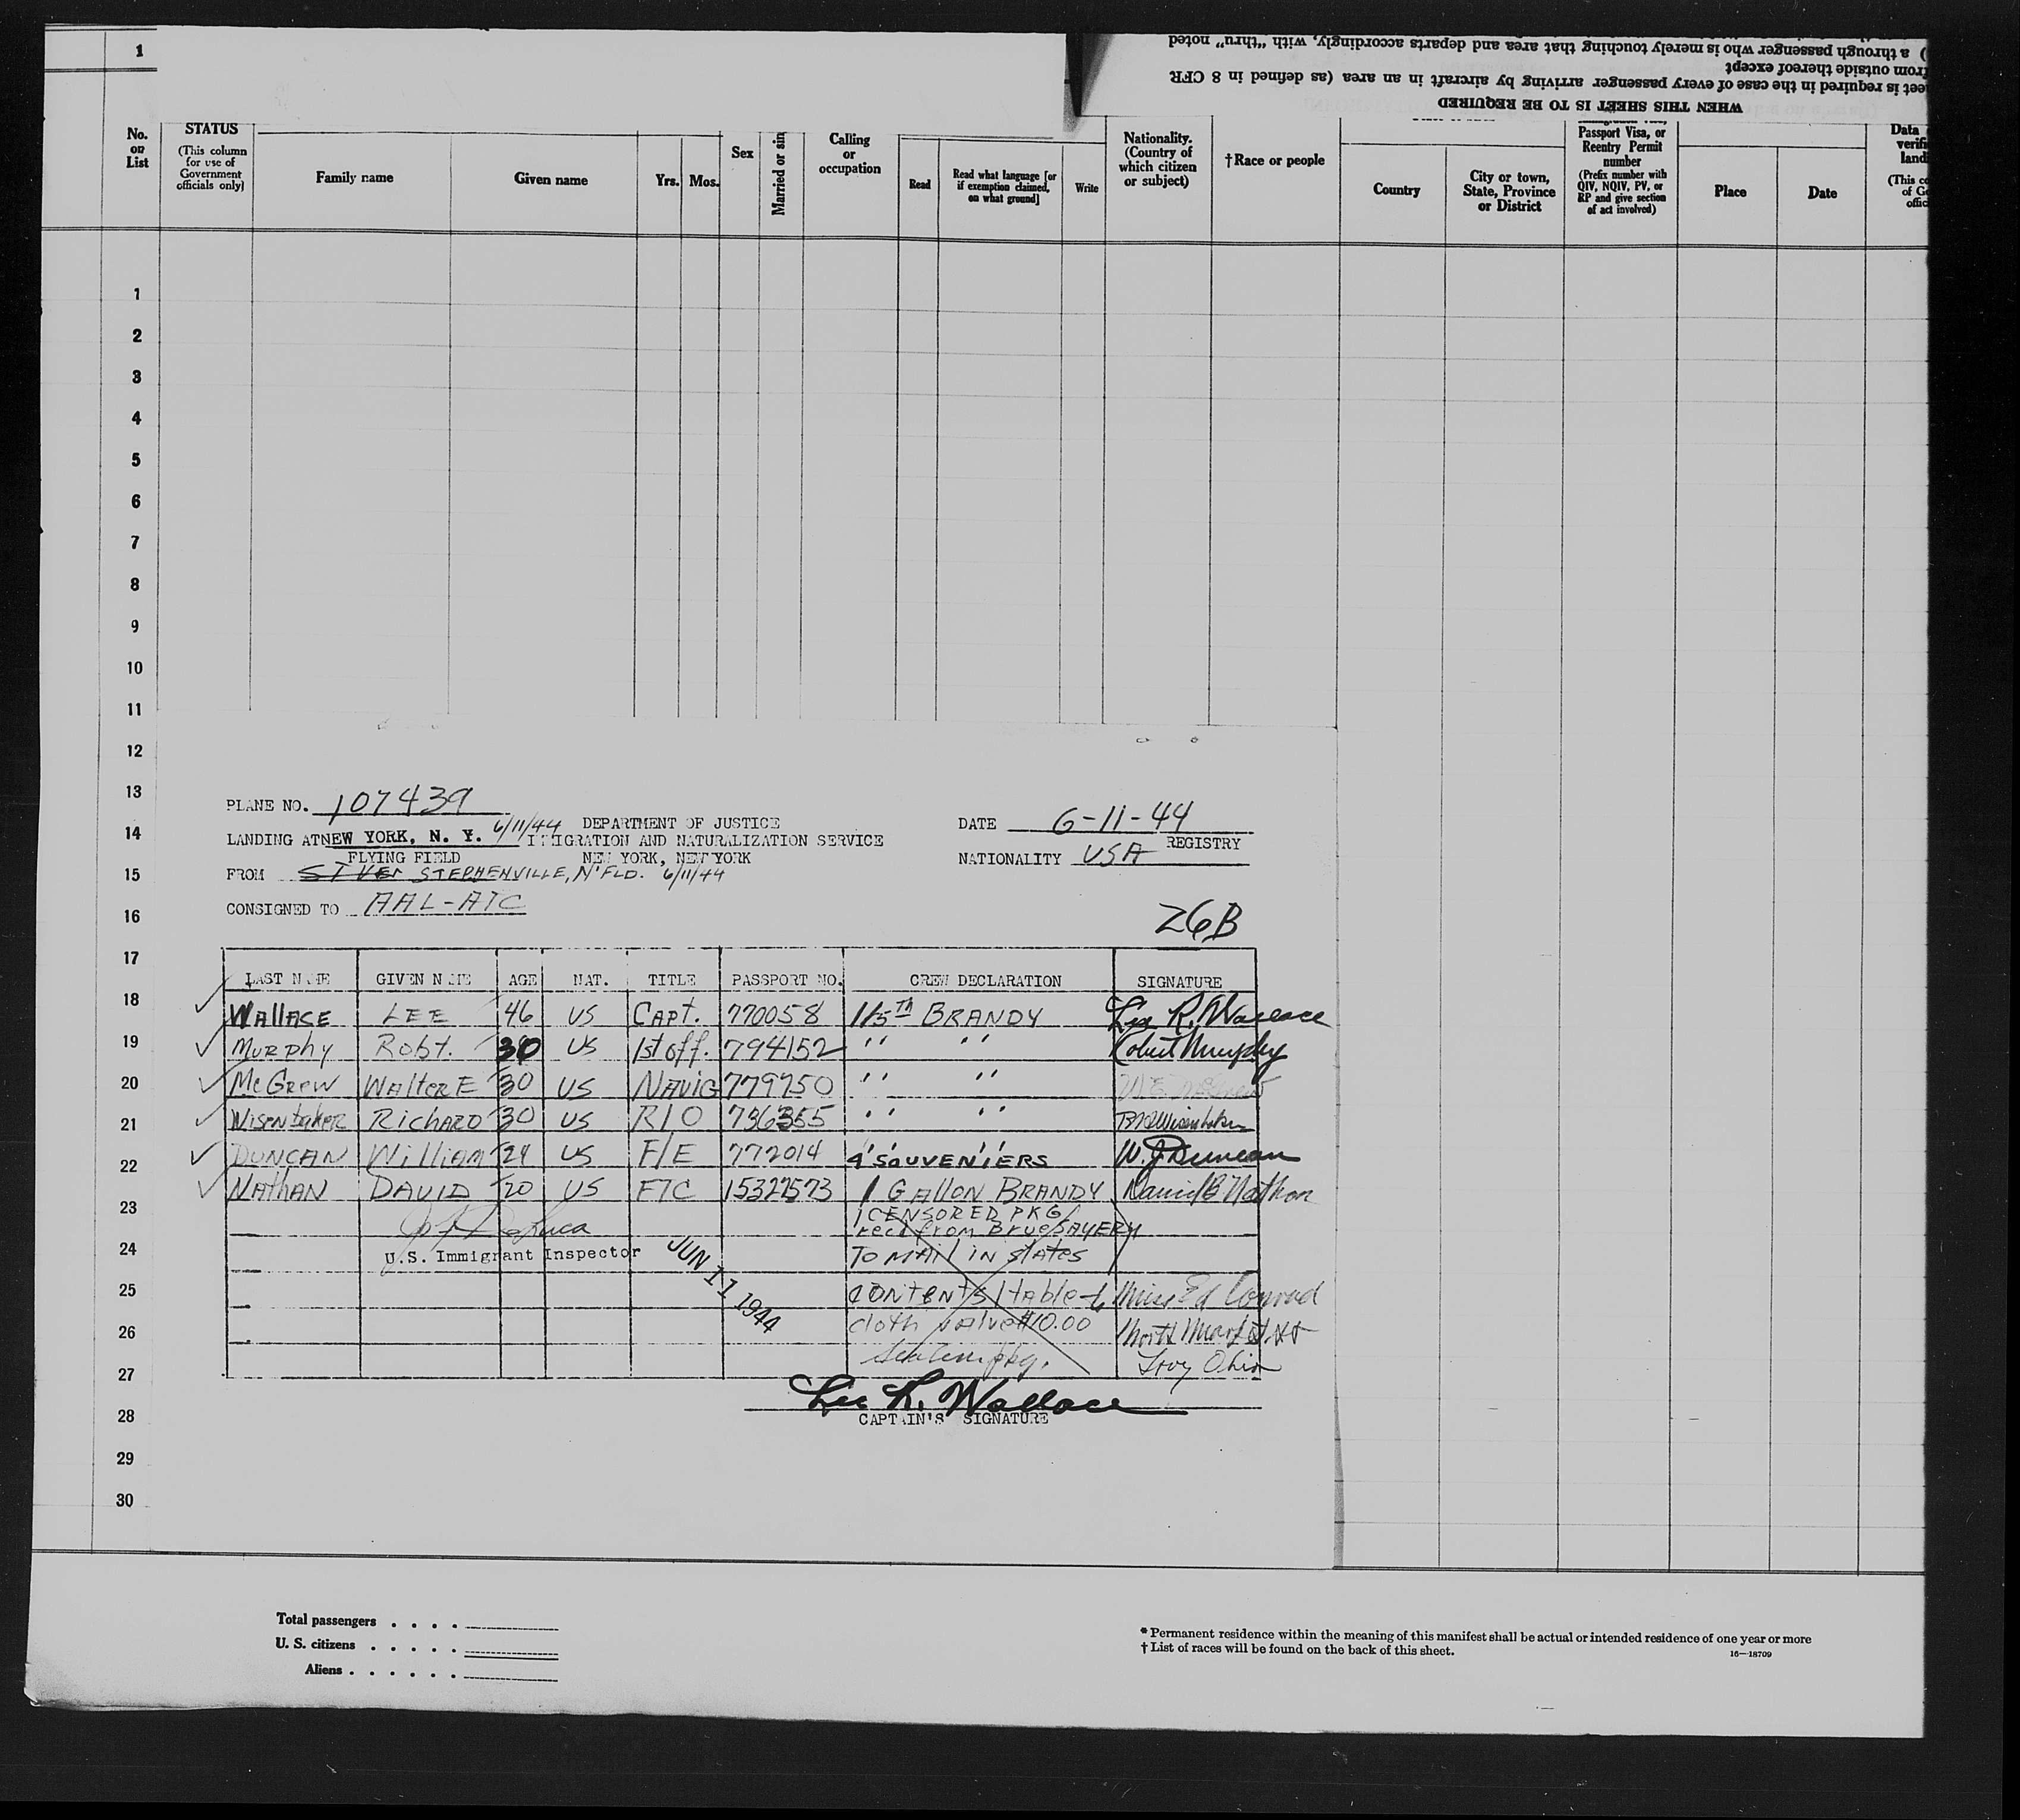 ) a through passenger who is merely touching that area and departs accordingly, with "thru" noted
from outside thereof except
eet is required in the case of every passenger arriving by aircraft in an area (as defined in 8 CFR
WHEN THIS SHEET IS TO BE REQUIRED
1
No. on List
STATUS
(This column for use of Government officials only)
Family name
Given name
Yrs.
Mos.
Sex
Married or sin
Calling or occupation
Read
Read what language [or if exemption claimed, on what ground]
Write
Nationality. (Country of which citizen or subject)
†Race or people
Country
City or town, State, Province or District
Passport Visa, or Reentry Permit number
(Prefix number with QIV, NQIV, PV, or RP and give section of act involved)
Place
Date
Data
verifi
landi
(This co
of Go
offic
1
2
3
4
5
6
7
8
9
10
11
12
13
14
15
16
17
18
19
20
21
22
23
24
25
26
27
28
29
30
PLANE NO. 107439
LANDING AT NEW YORK, N. Y. 6/11/44
FLYING FIELD
FROM STEPHENVILLE, N'FLD. 6/11/44
CONSIGNED TO AAL-ATC
DEPARTMENT OF JUSTICE
IMMIGRATION AND NATURALIZATION SERVICE
NEW YORK, NEW YORK
DATE 6-11-44
NATIONALITY USA REGISTRY
26B
LAST NAME GIVEN NAME AGE NAT. TITLE PASSPORT NO. CREW DECLARATION SIGNATURE
Wallace LEE 46 US CAPT. 770058 1 1/5TH BRANDY Lee R. Wallace
Murphy Robt. 30 US 1st off. 794152 " " Robert Murphy
McGrew Walter E 30 US NAVIG 779750 " " W.E. McGrew
Wisentaker Richard 30 US R/O 736355 " "
DUNCAN William 24 US F/E 772014 4 SOUVENIERS W. J. Duncan
NATHAN DAVID 20 US FTC 15327573 1 GALLON BRANDY David B Nathan
1 CENSORED PKG
recd from
TO MAIL IN States
U.S. Immigrant Inspector
JUN 11 1944
contents 1 table Miss Ed Conrad
cloth value $10.00 North Market St
Troy Ohio
Lee R. Wallace
CAPTAIN'S SIGNATURE
Total passengers . . . .
U. S. citizens . . . . .
Aliens . . . . . .
* Permanent residence within the meaning of this manifest shall be actual or intended residence of one year or more
† List of races will be found on the back of this sheet.
16—18709